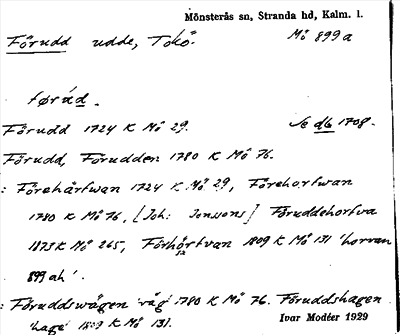 Mönsterås sn, Stranda hd, Kalm. l.
Förudd udde, Tokö. Mö 899a
førúd.
Förudd 1724 K Mö 29. Se db 1708.
Förudd, Förudden 1780 K Mö 76.
: Förehärfwan 1724 K Mö 29, Förehorfwan
1780 K Mö 76, [Joh: Jonssons] Föruddehorfva
1873 K Mö 265, Förhörfvan 1809 K Mö 131 'horvan
899 ah'.
: Föruddswägen 'väg' 1780 K Mö 76. Föruddshagen
'hage' 1809 K Mö 131. Ivar Modéer 1929